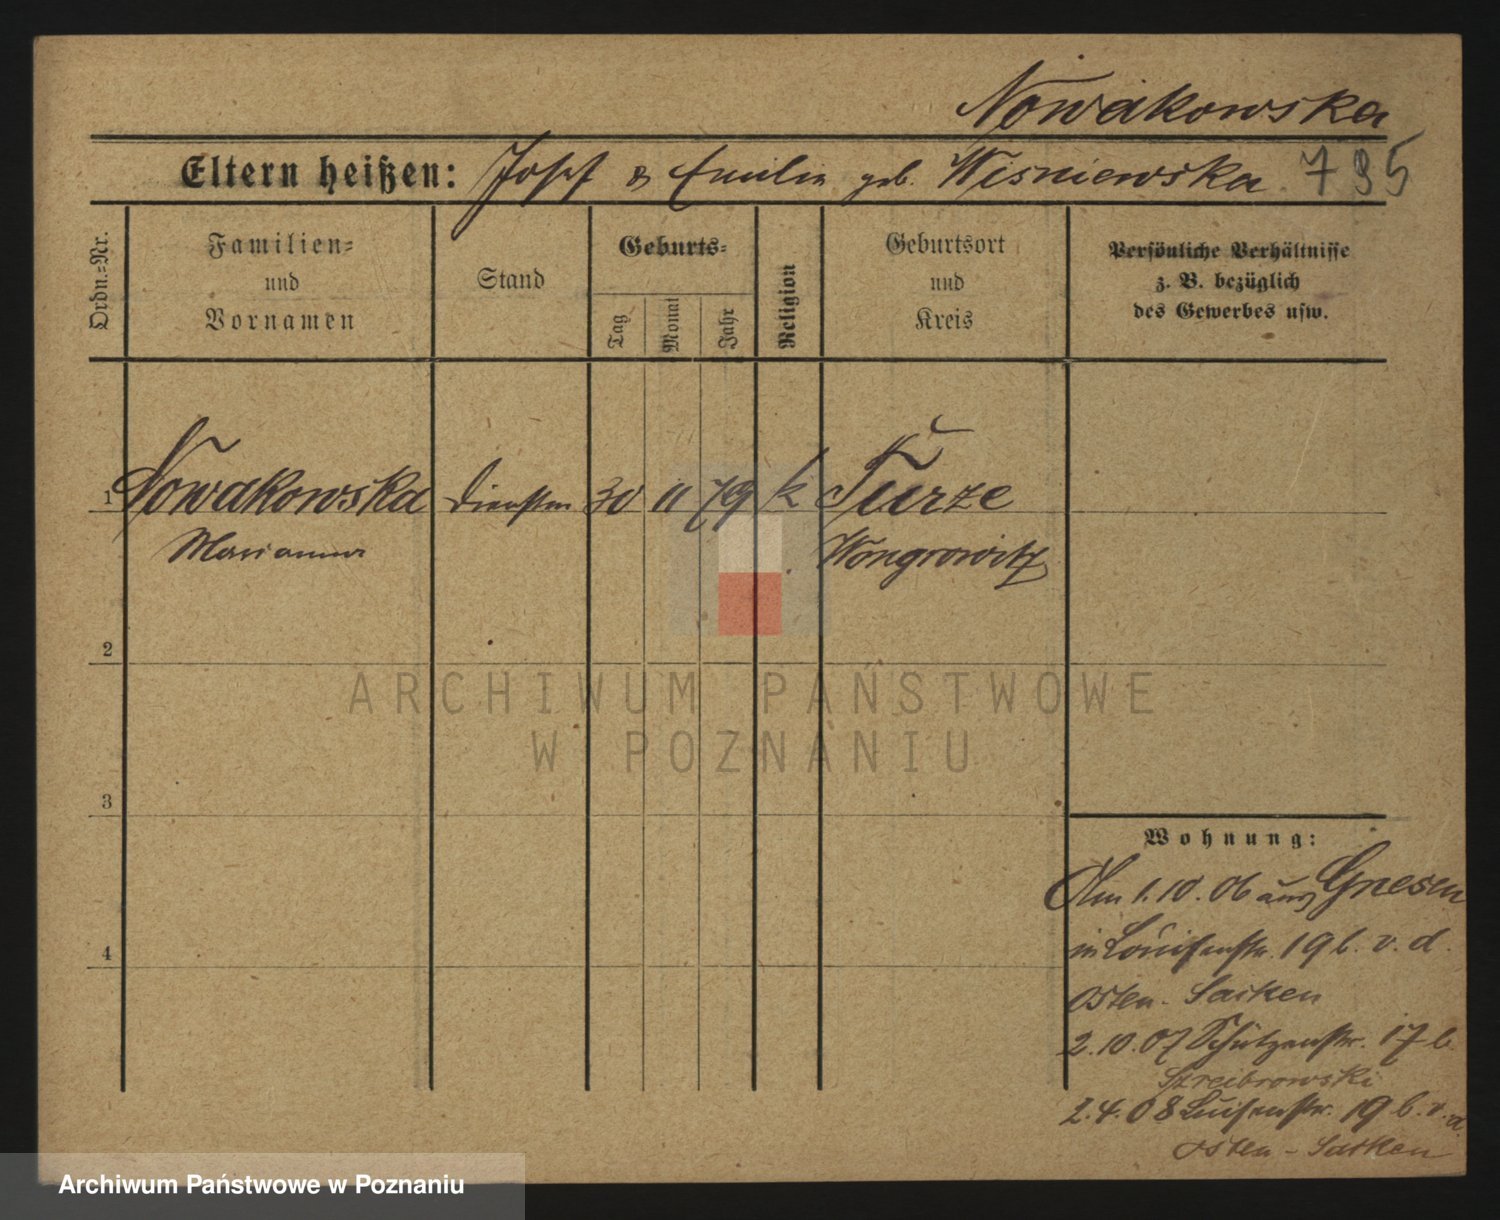 Nowakowska
Eltern heißen: Josef & Emilie geb. Wisniewska 795
Ordn.=Nr.
Familien=
und
Vornamen
Stand
Geburts=
Tag
Monat
Jahr
Religion
Geburtsort
und
Kreis
Persönliche Verhältnisse
z. B. bezüglich
des Gewerbes usw.
1 Nowakowska 30 11 79 k Turze
Marianna Wongrowitz
2
ARCHIWUM PAŃSTWOWE
W POZNANIU
3
Wohnung:
Am 1.10.06 aus Gnesen
in Louisenstr. 19 b. v. d.
Osten-Sacken
4
2.10.07 Schützenstr. 17 b.
Streibrowski
2.4.08 Luisenstr. 19 b. v. d.
Osten-Sacken
Archiwum Państwowe w Poznaniu